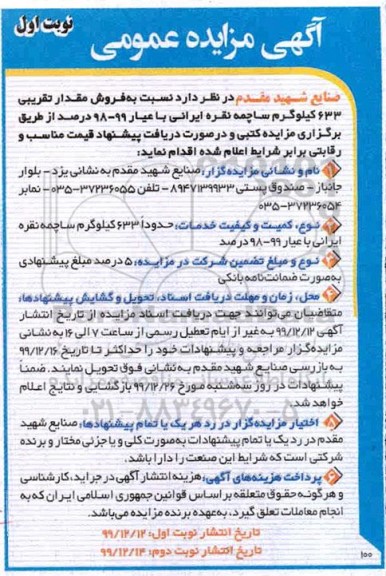 نوبت اول
آگهی مزایده عمومی
صنایع شهید مقدم در نظر دارد نسبت به فروش مقدار تقریبی
۶۳۳ کیلوگرم ساچمه نقره ایرانی با عیار ۹۹-۹۸ درصد از طریق
برگزاری مزایده کتبی و در صورت دریافت پیشنهاد قیمت مناسب و
رقابتی برابر شرایط اعلام شده اقدام نماید:
۱ نام و نشانی مزایده‌گزار: صنایع شهید مقدم به نشانی یزد - بلوار
جانباز - صندوق پستی ۸۹۴۷۱۳۹۹۳۳ - تلفن ۳۷۲۳۶۰۵۵-۰۳۵ - نمابر
۳۷۲۳۶۰۵۴-۰۳۵
۲ نوع، کمیت و کیفیت خدمات: حدوداً ۶۳۳ کیلوگرم ساچمه نقره
ایرانی با عیار ۹۹-۹۸ درصد
۳ نوع و مبلغ تضمین شرکت در مزایده: ۵ درصد مبلغ پیشنهادی
به‌صورت ضمانت‌نامه بانکی
۴ محل، زمان و مهلت دریافت اسناد، تحویل و گشایش پیشنهادها:
متقاضیان می‌توانند جهت دریافت اسناد مزایده از تاریخ انتشار
آگهی ۹۹/۱۲/۱۲ به غیر از ایام تعطیل رسمی از ساعت ۷ الی ۱۶ به نشانی
مزایده‌گزار مراجعه و پیشنهادات خود را حداکثر تا تاریخ ۹۹/۱۲/۱۶
به بازرسی صنایع شهید مقدم به نشانی فوق تحویل نمایند. ضمناً
پیشنهادات در روز سه‌شنبه مورخ ۹۹/۱۲/۲۶ بازگشایی و نتایج اعلام
خواهد شد.
۰۲۱-۸۸۳۴۹۶۷۰-۵
۵ اختیار مزایده‌گزار در رد هر یک یا تمام پیشنهادها: صنایع شهید
مقدم در رد یک یا تمام پیشنهادات به‌صورت کلی و یا جزئی مختار و برنده
شرکتی است که شرایط این صنعت را دارا باشد.
۶ پرداخت هزینه‌های آگهی: هزینه انتشار آگهی در جراید، کارشناسی
و هرگونه حقوق متعلقه بر اساس قوانین جمهوری اسلامی ایران که به
انجام معاملات تعلق گیرد، به‌عهده برنده مزایده می‌باشد.
تاریخ انتشار نوبت اول: ۹۹/۱۲/۱۲
تاریخ انتشار نوبت دوم: ۹۹/۱۲/۱۴
۱۰۰